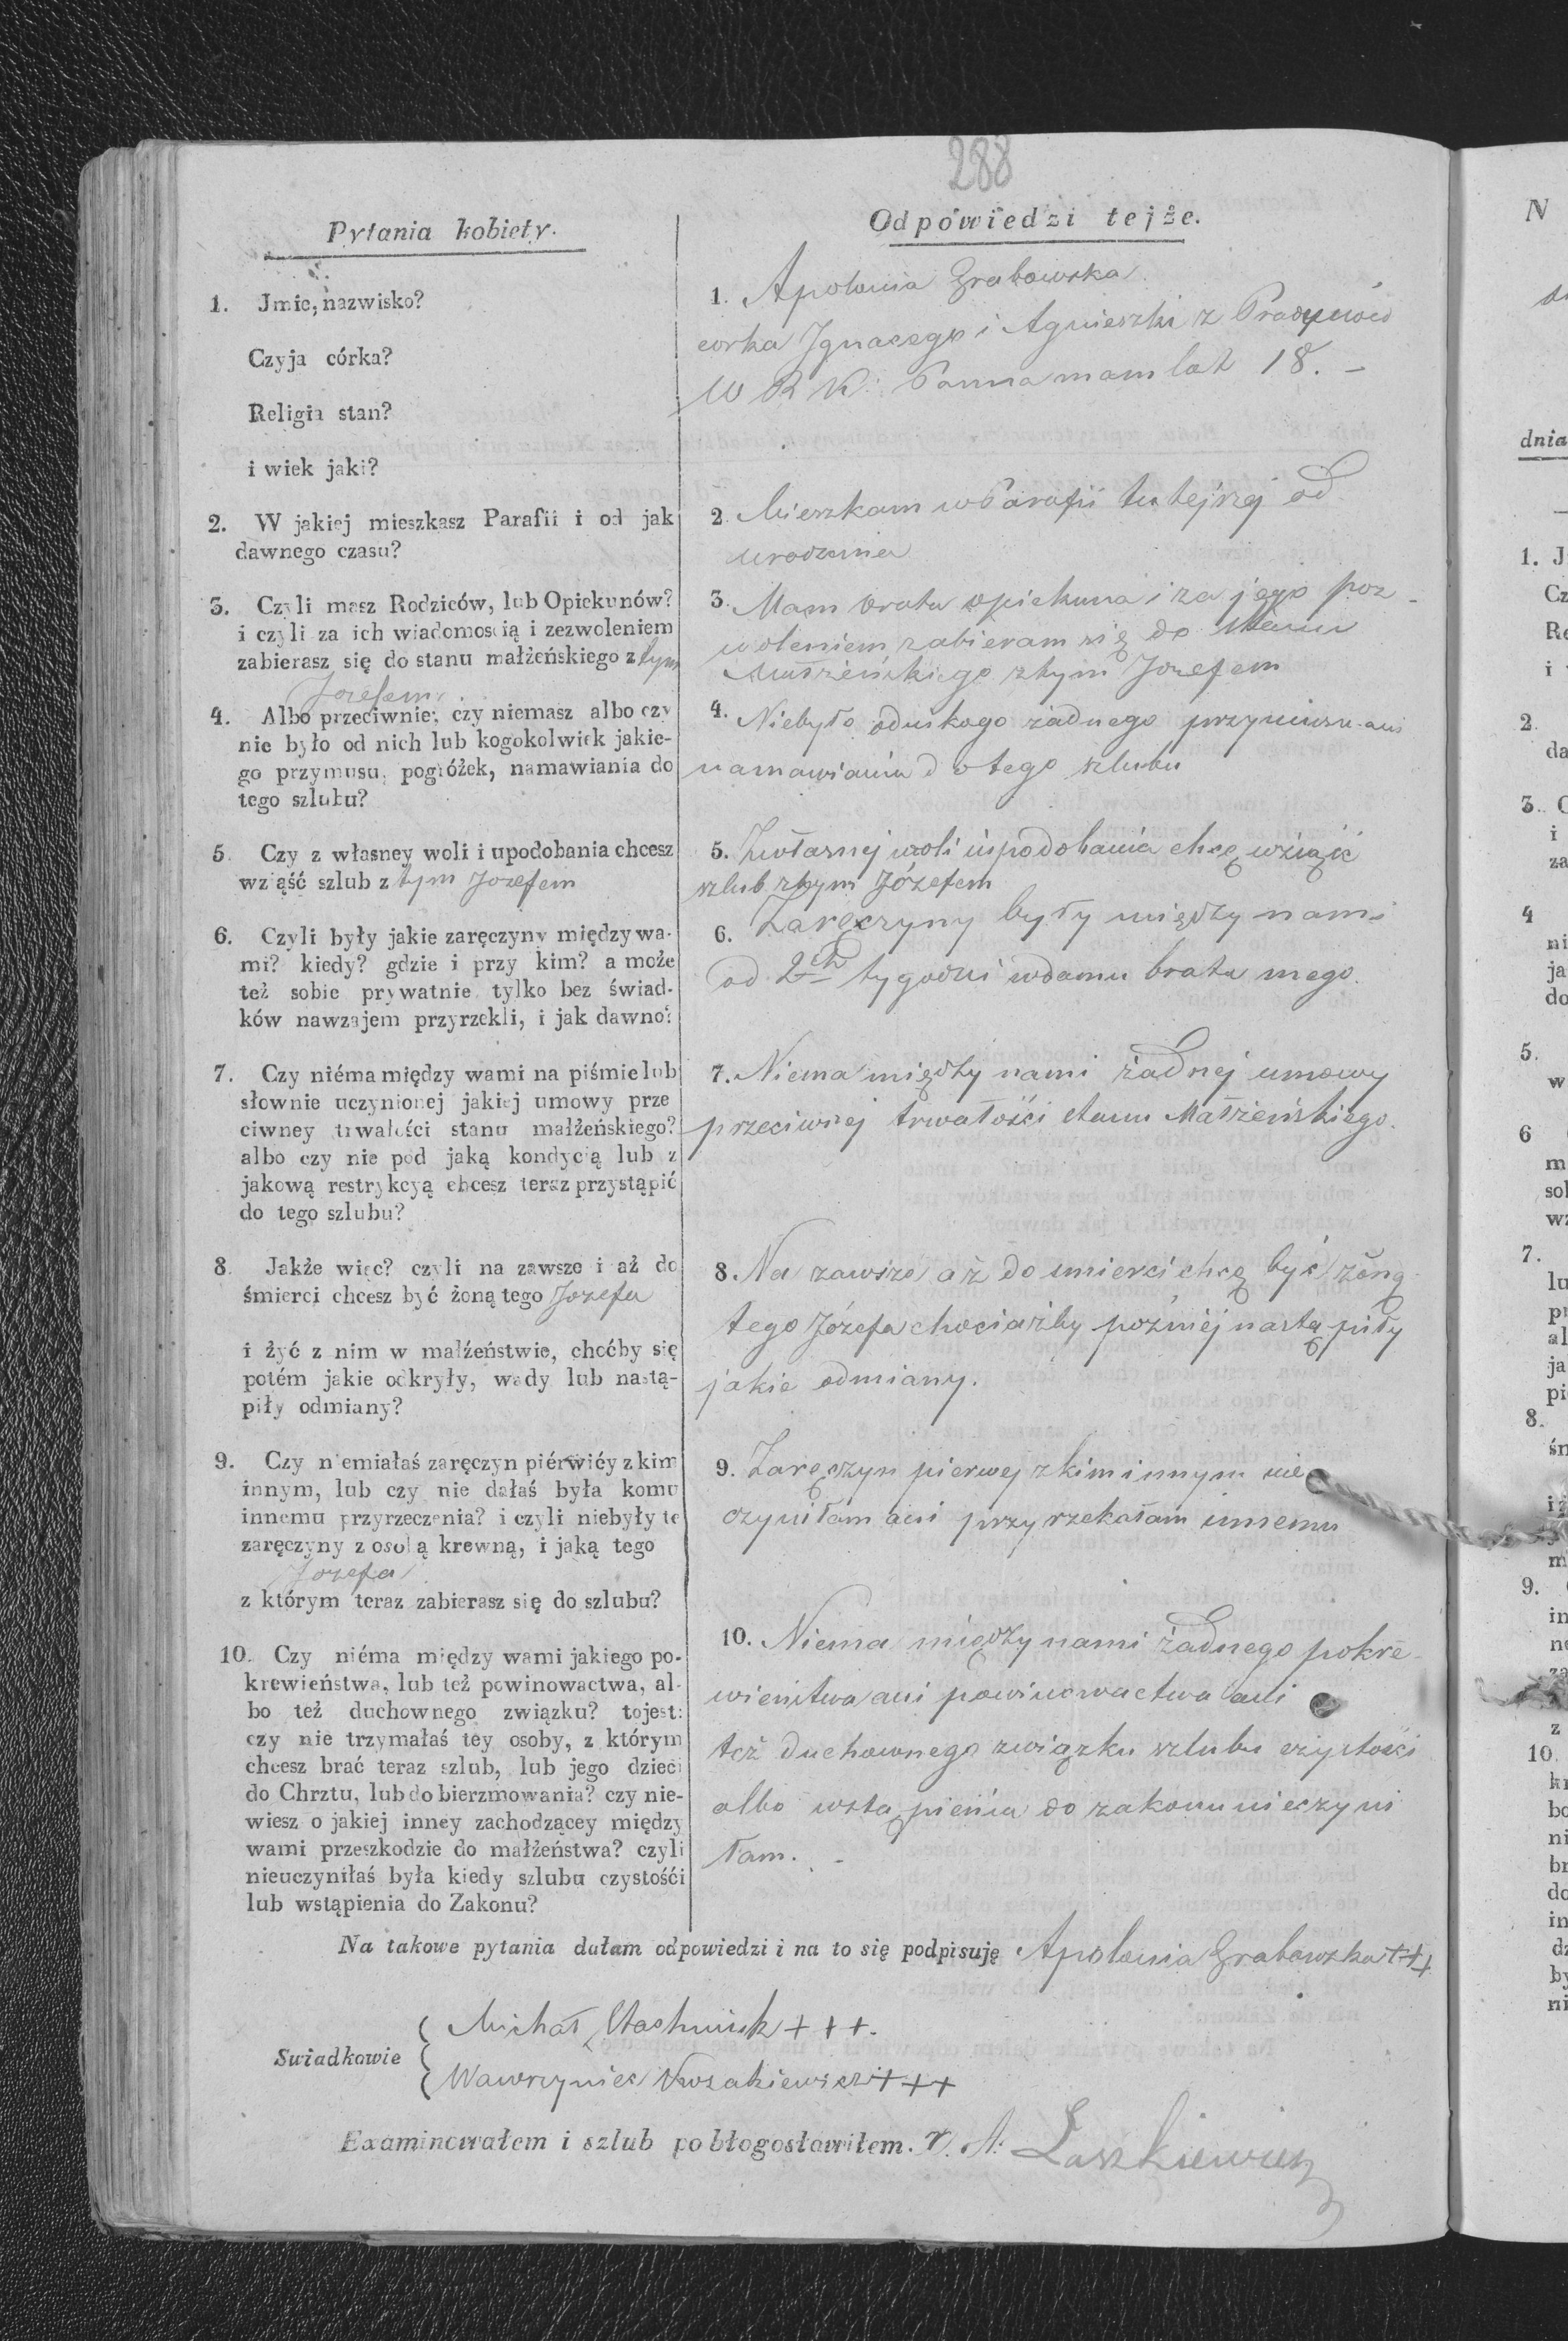 288
Pytania kobiety.
1. Jmie, nazwisko?
Czyja córka?
Religia stan?
i wiek jaki?
2. W jakiej mieszkasz Parafii i od jak
dawnego czasu?
3. Czyli masz Rodziców, lub Opiekunów?
i czyli za ich wiadomością i zezwoleniem
zabierasz się do stanu małżeńskiego z tym
Jozefem
4. Albo przeciwnie; czy niemasz albo czy
nie było od nich lub kogokolwiek jakie-
go przymusu, pogróżek, namawiania do
tego szlubu?
5. Czy z własney woli i upodobania chcesz
wziąść szlub z tym Jozefem
6. Czyli były jakie zaręczyny między wa-
mi? kiedy? gdzie i przy kim? a może
też sobie prywatnie tylko bez świad-
ków nawzajem przyrzekli, i jak dawno?
7. Czy niéma między wami na piśmie lub
słownie uczynionej jakiej umowy prze
ciwney trwałości stanu małżeńskiego?
albo czy nie pod jaką kondycią lub z
jakową restrykcyą chcesz teraz przystąpić
do tego szlubu?
8. Jakże więc? czyli na zawsze i aż do
śmierci chcesz być żoną tego Jozefa
i żyć z nim w małżeństwie, choćby się
potém jakie odkryły, wady lub nastą-
piły odmiany?
9. Czy niemiałaś zaręczyn piérwiéy z kim
innym, lub czy nie dałaś była komu
innemu przyrzeczenia? i czyli niebyły te
zaręczyny z osobą krewną, i jaką tego
Jozefa
z którym teraz zabierasz się do szlubu?
10. Czy niéma między wami jakiego po-
krewieństwa, lub też powinowactwa, al-
bo też duchownego związku? tojest:
czy nie trzymałaś tey osoby, z którym
chcesz brać teraz szlub, lub jego dzieci
do Chrztu, lub do bierzmowania? czy nie-
wiesz o jakiej inney zachodzącey między
wami przeszkodzie do małżeństwa? czyli
nieuczyniłaś była kiedy szlubu czystośći
lub wstąpienia do Zakonu?
Odpowiedzi tejże.
1. Apolonia Grabowska
corka Jgnacego i Agnieszki z
W R K: Panna mam lat 18. -
2. Mieszkam w Parafii tutejszej od
urodzenia
3. Mam brata opiekuna i za jego poz-
woleniem zabieram się do stanu
Małżeńskiego ztym Jozefem
4. Niebyło odnikogo żadnego przymusu ani
namawiania do tego szlubu
5. Zwłasnej woli i upodobania chcę wziąść
szlub ztym Józefem
6. Zaręczyny były między nami
od 2ch tygodni wdomu brata mego.
7. Niema między nami żadnej umowy
przeciwnej trwałości stanu Małżeńskiego.
8. Na zawsze aż do śmierci chcę być żoną
tego Józefa chociażby pożniéj nastąpiły
jakie odmiany.
9. Zaręczyn pierwej zkim innym nie
czyniłam ani przyrzekałam innemu
10. Niema między nami żadnego pokre-
wieństwa ani powinowactwa ani
też duchownego związku szlubu czystości
albo wstąpienia do zakonu nieczyni
łam. -
Na takowe pytania dałam odpowiedzi i na to się podpisuję Apolonia Grabowska +++
Swiadkowie
Michał Stachniuk +++.
Wawrzyniec +++
Examinowałem i szlub pobłogosławiłem. X. A: Laszkiewicz
N
dnia
1. J
Cz
Re
i
2.
da
3. C
i
za
4
ni
ja
do
5.
w
6
m
sol
wz
7.
lu
pr
al
ja
pi
8.
śn
m
9.
in
ne
za
z
10.
kr
bo
ni
br
do
in
dz
by
ni